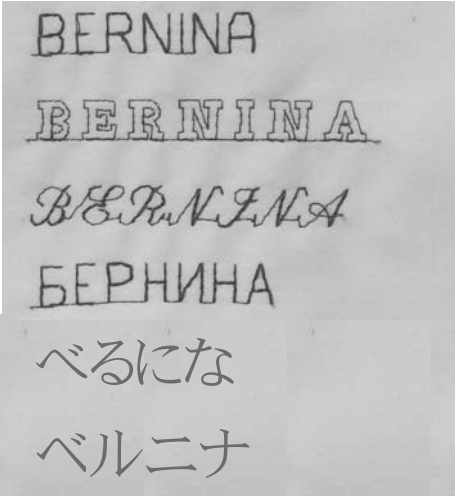 BERNINA
BERNINA
BERNINA
БЕРНИНА
べるにな
ベルニナ